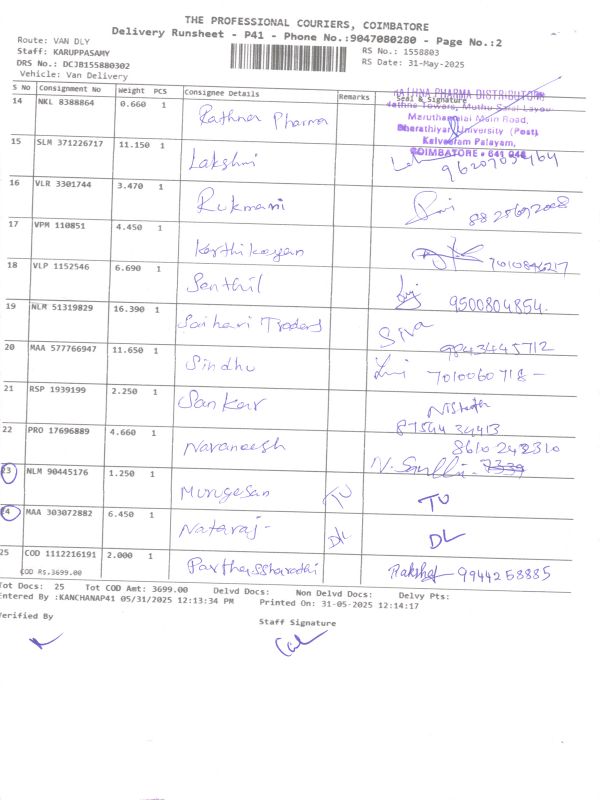 THE PROFESSIONAL COURIERS, COIMBATORE
Delivery Runsheet - P41 - Phone No.:9047080280 - Page No.:2
Route: VAN DLY
Staff: KARUPPASAMY
DRS No.: DCJB155880302
Vehicle: Van Delivery
RS No.: 1558803
RS Date: 31-May-2025
S No Consignment No Weight PCS Consignee Details Remarks Seal & Signature
14 NKL 8388864 0.660 1 Rathna Pharma
RATHNA PHARMA DISTRIBUTORS
Rathna Towers, Muthu Sarai Layout
Maruthamalai Main Road,
Bharathiyar University (Post)
Kalveeram Palayam,
COIMBATORE - 641 046
15 SLM 371226717 11.150 1 Lakshmi
16 VLR 3301744 3.470 1 Rukmani
17 VPM 110851 4.450 1 Karthikeyan
18 VLP 1152546 6.690 1 Senthil 9500804854.
19 NLM 51319829 16.390 1 Saihari Traders Siva 9843445712
20 MAA 577766947 11.650 1 Sindhu 7010060718
21 RSP 1939199 2.250 1 Sankar 8754434413
22 PRO 17696889 4.660 1 Navaneesh 8610242310
23 NLM 90445176 1.250 1 Murugesan TU TU
24 MAA 303072882 6.450 1 Nataraj- DL DL
25 COD 1112216191 2.000 1 Parthassharathi Rakshet 9944258885
COD RS.3699.00
Tot Docs: 25 Tot COD Amt: 3699.00 Delvd Docs: Non Delvd Docs: Delvy Pts:
Entered By :KANCHANAP41 05/31/2025 12:13:34 PM Printed On: 31-05-2025 12:14:17
Verified By
Staff Signature